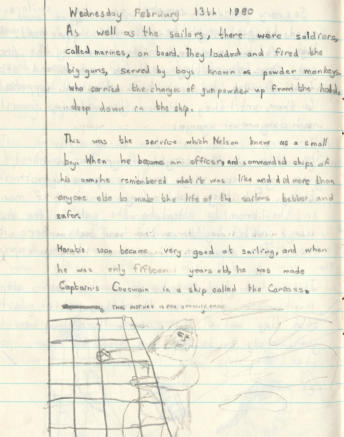 Wednesday February 13th 1980
As well as the sailors, there were soldiers,
called marines, on board. They loaded and fired the
big guns, served by boys known as powder monkeys
who carried the charges of gunpowder up from the holds
deep down in the ship.
This was the service which Nelson knew as a small
boy. When he became an officer, and commanded ships of
his own, he remembered what it was like and did more than
anyone else to make the life of the sailors better and
safer.
Horatio soon became very good at sailing, and when
he was only fifteen years old, he was made
Captain's Coxswain in a ship called the Carcass.
THIS PICTURE IS FOR